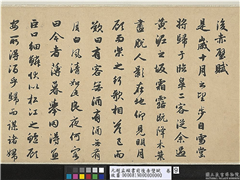 後赤壁賦
是歲十月之望步自雪堂
將歸于臨皋二客從余過
黃泥之坂霜露既降木葉
盡脫人影在地仰見明月
顧而樂之行歌相答已而
歎曰有客無酒有酒無肴
月白風清如此良夜何客
曰今者薄暮舉網得魚
巨口細鱗狀似松江之鱸顧
安所得酒乎歸而謀諸婦